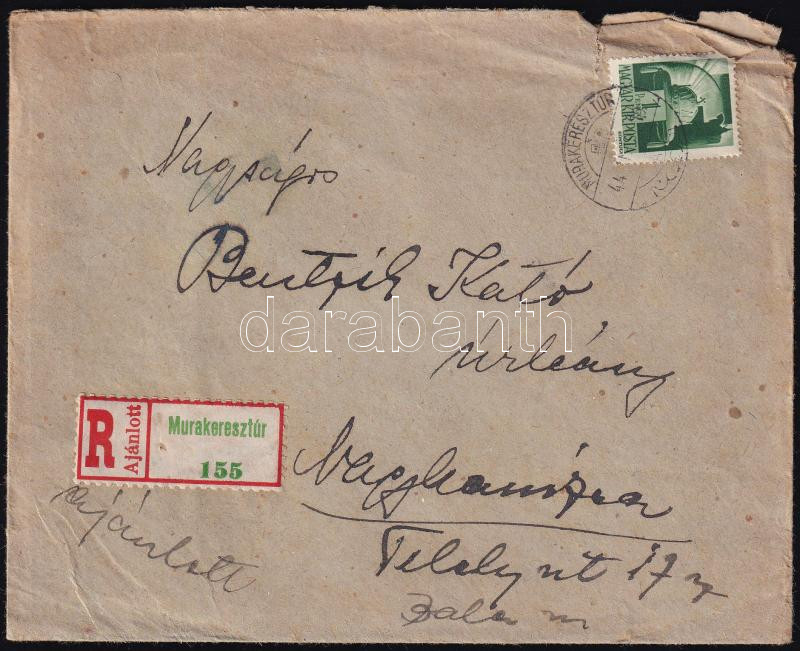 MAGYAR KIR. POSTA
1
MURAKERESZTÚR
44
Nagyságos
Bentzik Kató
úrleány
darabanth
R Ajánlott
Murakeresztúr
155
Nagykanizsa
ajánlott
út 17
Zala m